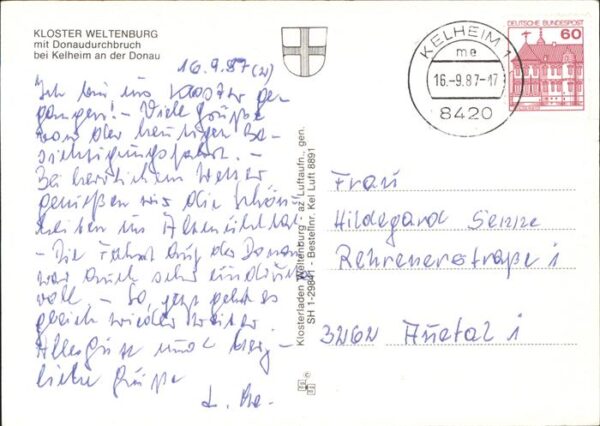 KLOSTER WELTENBURG
mit Donaudurchbruch
bei Kelheim an der Donau
16.9.87 (21)
Ich bin ins Kloster ge
gangen! - Viele Grüße
von der heutigen Be-
sichtigungsfahrt. -
Bei herrlichem Wetter
genießen wir die Schön-
heiten im Altmühltal
- Die Fahrt auf der Donau
war auch sehr eindrucks
voll. - So, jetzt geht es
gleich wieder weiter.
Alles Gute und herz-
liche Grüße
KELHEIM 1
me
16.-9.87-17
8420
DEUTSCHE BUNDESPOST
60
Klosterladen Weltenburg - az Luftaufn., gen.
SH 1-29841 - Bestellnr. Kel Luft 8891
Frau
Hildegard
Rehrenerstraße 1
3262 Auetal 1